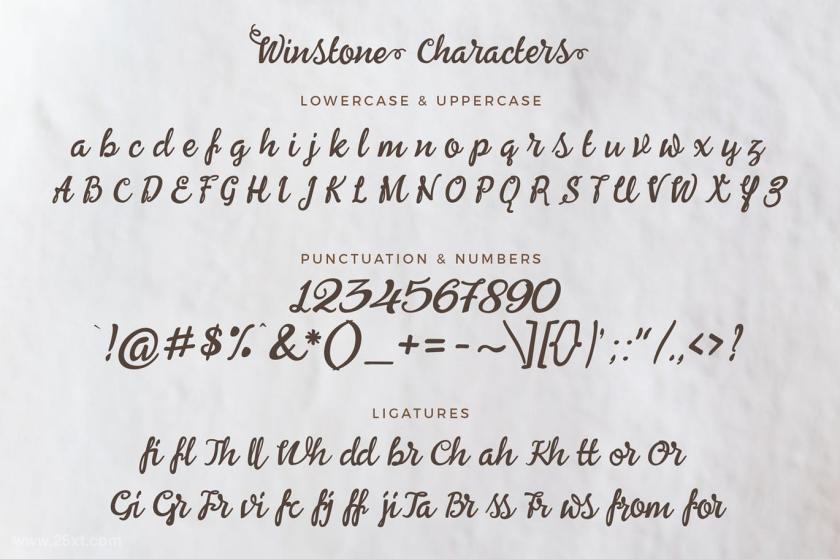 Winstone Characters
LOWERCASE & UPPERCASE
a b c d e f g h i j k l m n o p q r s t u v w x y z
A B C D E F G H I J K L M N O P Q R S T U V W X Y Z
PUNCTUATION & NUMBERS
1234567890
`!@#$%^&*()_+=-~\][{}|';:"/.,<>?
LIGATURES
fi fl Th ll Wh dd br Ch ah Kh tt or Or
Gi Gr Fr vi fc fj ff ji Ta Br ss Tr ws from for
www.25xt.com